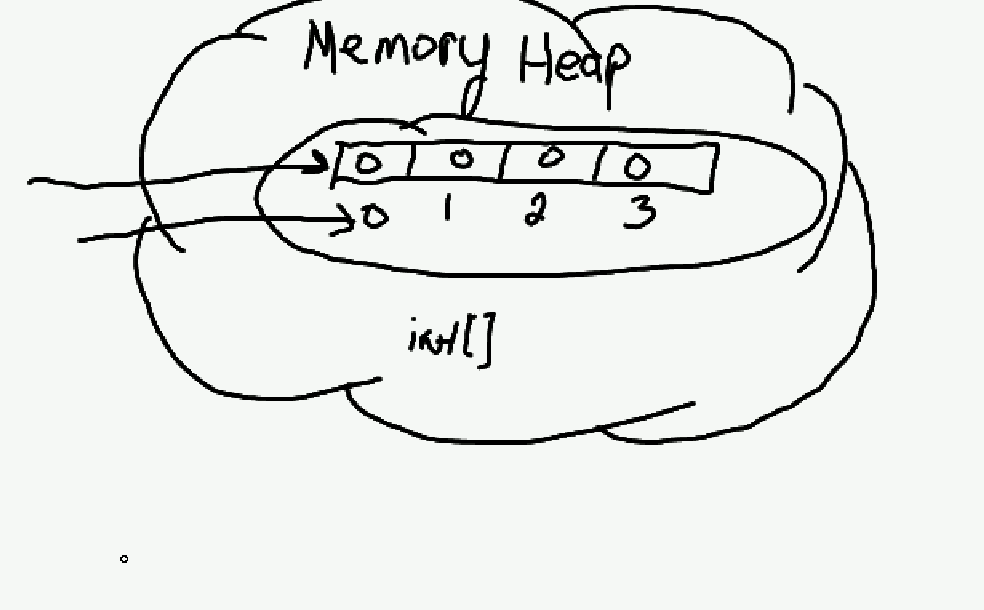 Memory Heap
0 0 0 0
0 1 2 3
int[]